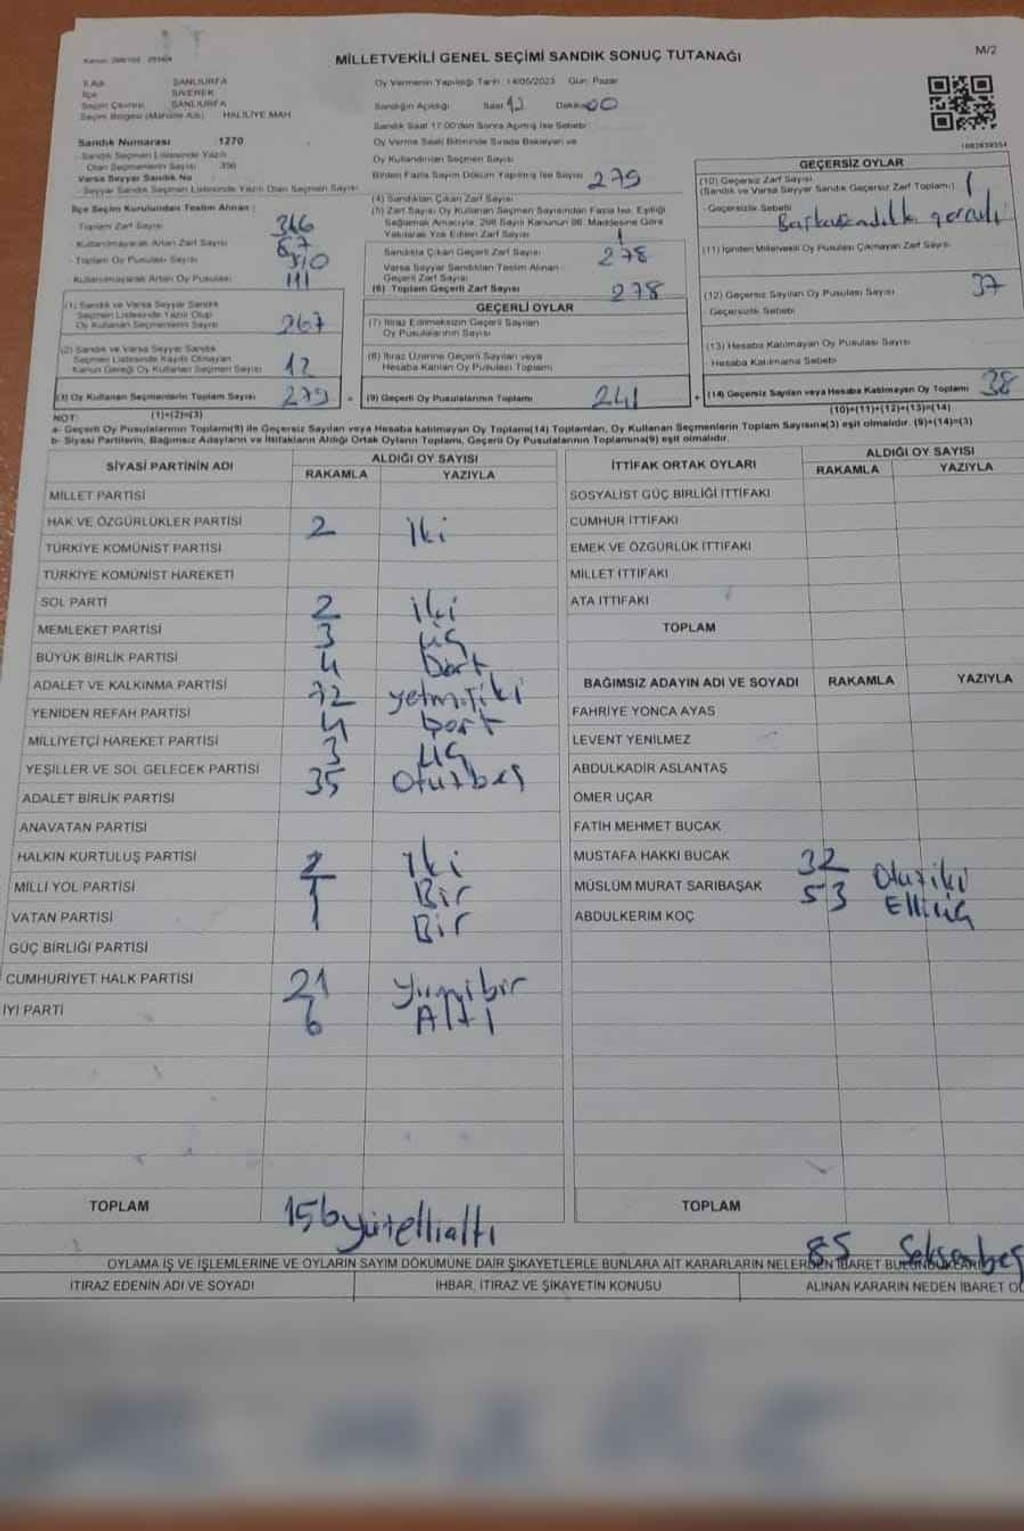 MİLLETVEKİLİ GENEL SEÇİMİ SANDIK SONUÇ TUTANAĞI
M/2
İl Adı : ŞANLIURFA
İlçe : SİVEREK
Seçim Çevresi : ŞANLIURFA
Seçim Bölgesi (Mahalle Adı) : HALİLİYE MAH
Oy Vermenin Yapıldığı Tarih : 14/05/2023 Gün: Pazar
Sandığın Açıldığı Saat 12 Dakika 00
Sandık Saat 17:00'den Sonra Açılmış İse Sebebi :
Sandık Numarası 1270
Oy Verme Saati Bitiminde Sırada Bekleyen ve
Oy Kullandırılan Seçmen Sayısı
- Sandık Seçmen Listesinde Yazılı
Olan Seçmenlerin Sayısı
Varsa Seyyar Sandık No
- Seyyar Sandık Seçmen Listesinde Yazılı Olan Seçmen Sayısı
Birden Fazla Sayım Döküm Yapılmış İse Sayısı
İlçe Seçim Kurulundan Teslim Alınan :
- Toplam Zarf Sayısı 346
- Kullanılmayarak Artan Zarf Sayısı 67
- Toplam Oy Pusulası Sayısı
- Kullanılmayarak Artan Oy Pusulası 111
(1) Sandık ve Varsa Seyyar Sandık
Seçmen Listesinde Yazılı Olup
Oy Kullanan Seçmenlerin Sayısı 267
(2) Sandık ve Varsa Seyyar Sandık
Seçmen Listesinde Kayıtlı Olmayan
Kanun Gereği Oy Kullanan Seçmen Sayısı 12
(3) Oy Kullanan Seçmenlerin Toplam Sayısı 279
(4) Sandıktan Çıkan Zarf Sayısı 279
(5) Zarf Sayısı Oy Kullanan Seçmen Sayısından Fazla İse, Eşitliği
Sağlamak Amacıyla; 298 Sayılı Kanunun 98. Maddesine Göre
Yakılarak Yok Edilen Zarf Sayısı 1
Sandıkta Çıkan Geçerli Zarf Sayısı 278
Varsa Seyyar Sandıktan Teslim Alınan
Geçerli Zarf Sayısı
(6) Toplam Geçerli Zarf Sayısı 278
GEÇERLİ OYLAR
(7) İtiraz Edilmeksizin Geçerli Sayılan
Oy Pusulalarının Sayısı
(8) İtiraz Üzerine Geçerli Sayılan veya
Hesaba Katılan Oy Pusulası Toplamı
= (9) Geçerli Oy Pusulalarının Toplamı 241
1082839354
GEÇERSİZ OYLAR
(10) Geçersiz Zarf Sayısı
(Sandık ve Varsa Seyyar Sandık Geçersiz Zarf Toplamı) 1
- Geçersizlik Sebebi
(11) İçinden Milletvekili Oy Pusulası Çıkmayan Zarf Sayısı
(12) Geçersiz Sayılan Oy Pusulası Sayısı 37
Geçersizlik Sebebi
(13) Hesaba Katılmayan Oy Pusulası Sayısı
Hesaba Katılmama Sebebi
+ (14) Geçersiz Sayılan veya Hesaba Katılmayan Oy Toplamı 38
NOT: (1)+(2)=(3)
(10)+(11)+(12)+(13)=(14)
a- Geçerli Oy Pusulalarının Toplamı(9) ile Geçersiz Sayılan veya Hesaba katılmayan Oy Toplamı(14) Toplamları, Oy Kullanan Seçmenlerin Toplam Sayısına(3) eşit olmalıdır. (9)+(14)=(3)
b- Siyasi Partilerin, Bağımsız Adayların ve İttifakların Aldığı Ortak Oyların Toplamı, Geçerli Oy Pusulalarının Toplamına(9) eşit olmalıdır.
SİYASİ PARTİNİN ADI ALDIĞI OY SAYISI
RAKAMLA YAZIYLA
MİLLET PARTİSİ
HAK VE ÖZGÜRLÜKLER PARTİSİ 2 iki
TÜRKİYE KOMÜNİST PARTİSİ
TÜRKİYE KOMÜNİST HAREKETİ
SOL PARTİ 2 iki
MEMLEKET PARTİSİ 3 üç
BÜYÜK BİRLİK PARTİSİ 4 Dört
ADALET VE KALKINMA PARTİSİ 72 yetmişiki
YENİDEN REFAH PARTİSİ 4 Dört
MİLLİYETÇİ HAREKET PARTİSİ 3 üç
YEŞİLLER VE SOL GELECEK PARTİSİ 35 Otuzbeş
ADALET BİRLİK PARTİSİ
ANAVATAN PARTİSİ
HALKIN KURTULUŞ PARTİSİ 2 İki
MİLLİ YOL PARTİSİ 1 Bir
VATAN PARTİSİ 1 Bir
GÜÇ BİRLİĞİ PARTİSİ
CUMHURİYET HALK PARTİSİ 21 yirmibir
İYİ PARTİ 6 Altı
TOPLAM 156 yüzelliailtı
İTTİFAK ORTAK OYLARI ALDIĞI OY SAYISI
RAKAMLA YAZIYLA
SOSYALİST GÜÇ BİRLİĞİ İTTİFAKI
CUMHUR İTTİFAKI
EMEK VE ÖZGÜRLÜK İTTİFAKI
MİLLET İTTİFAKI
ATA İTTİFAKI
TOPLAM
BAĞIMSIZ ADAYIN ADI VE SOYADI RAKAMLA YAZIYLA
FAHRİYE YONCA AYAS
LEVENT YENİLMEZ
ABDULKADİR ASLANTAŞ
ÖMER UÇAR
FATİH MEHMET BUCAK
MUSTAFA HAKKI BUCAK 32 Otuziki
MÜSLÜM MURAT SARIBAŞAK 53 Elliüç
ABDULKERİM KOÇ
TOPLAM 85 Seksenbeş
OYLAMA İŞ VE İŞLEMLERİNE VE OYLARIN SAYIM DÖKÜMÜNE DAİR ŞİKAYETLERLE BUNLARA AİT KARARLARIN NELERDEN İBARET
İTİRAZ EDENİN ADI VE SOYADI İHBAR, İTİRAZ VE ŞİKAYETİN KONUSU ALINAN KARARIN NEDEN İBARET